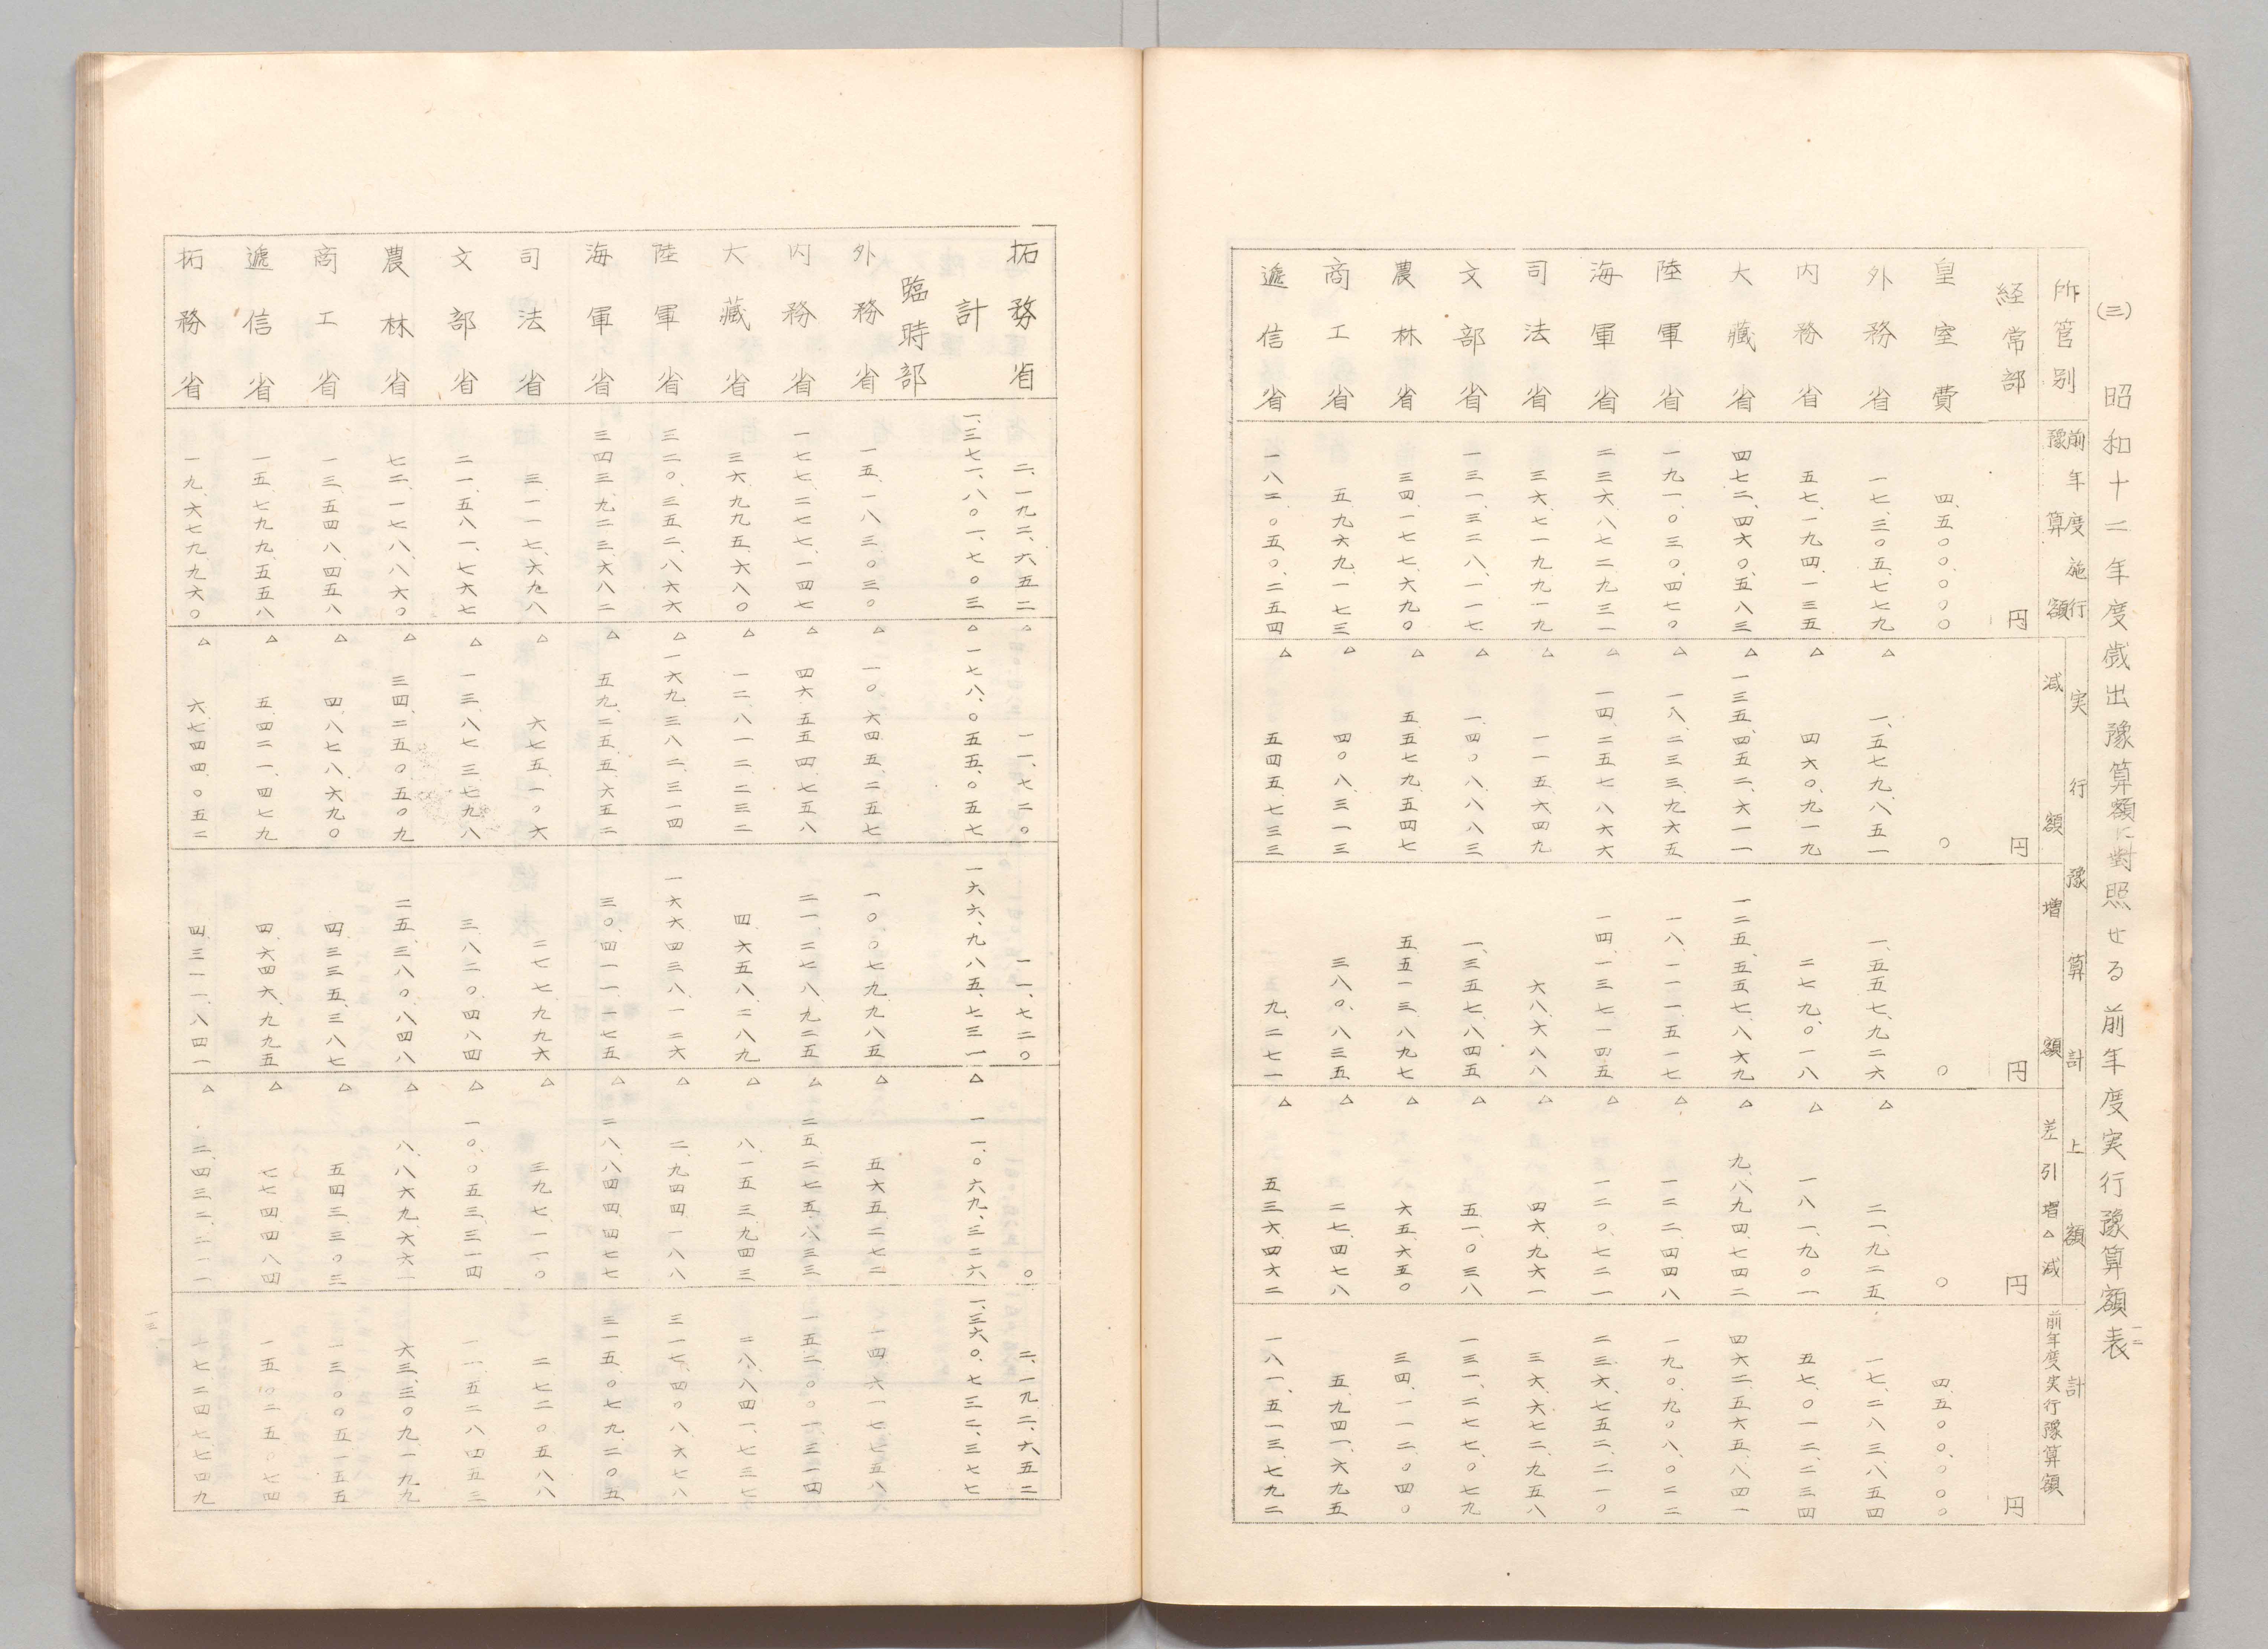 (三) 昭和十二年度歳出豫算額に對照せる前年度実行豫算額表
一二
所管別 前年度施行豫算額 実行豫算計上額 減額 増額 差引増△減 計 前年度実行豫算額
経常部 円 円 円 円 円
皇室費 四、五〇〇、〇〇〇 〇 〇 〇 四、五〇〇、〇〇〇
外務省 一七、三〇五、七七九 △ 一、五七九、八五一 一、五五七、九二六 △ 二一、九二五 一七、二八三、八五四
内務省 五七、一九四、一三五 △ 四六〇、九一九 二七九、〇一八 △ 一八一、九〇一 五七、〇一二、二三四
大藏省 四七二、四六〇、五八三 △ 一三五、四五二、六一一 一二五、五五七、八六九 △ 九、八九四、七四二 四六二、五六五、八四一
陸軍省 一九一、〇三〇、四七〇 △ 一八、二三三、九六五 一八、一一一、五一七 △ 一二二、四四八 一九〇、九〇八、〇二二
海軍省 二三六、八七二、九三一 △ 一四、二五七、八六六 一四、一三七、一四五 △ 一二〇、七二一 二三六、七五二、二一〇
司法省 三六、七一九、九一九 △ 一一五、六四九 六八、六八八 △ 四六、九六一 三六、六七二、九五八
文部省 一三一、三二八、一一七 △ 一、四〇八、八八三 一、三五七、八四五 △ 五一、〇三八 一三一、二七七、〇七九
農林省 三四、一七七、六九〇 △ 五、五七九、五四七 五、五一三、八九七 △ 六五、六五〇 三四、一一二、〇四〇
商工省 五、九六九、一七三 △ 四〇八、三一三 三八〇、八三五 △ 二七、四七八 五、九四一、六九五
遞信省 一八二、〇五〇、二五四 △ 五四五、七三三 九、二七一 △ 五三六、四六二 一八一、五一三、七九二
拓務省 二、一九二、六五二 △ 一一、七二〇 一一、七二〇 〇 二、一九二、六五二
計 一、三七一、八〇一、七〇三 △ 一七八、〇五五、〇五七 一六六、九八五、七三一 △ 一一、〇六九、三二六 一、三六〇、七三二、三七七
臨時部
外務省 一五、一八三、〇三〇 △ 一〇、六四五、二五七 一〇、〇七九、九八五 △ 五六五、二七二 一四、六一七、七五八
内務省 一七七、二七七、一四七 △ 四六、五五四、七五八 二一、二七八、九二五 △ 二五、二七五、八三三 一五二、〇〇一、三一四
大藏省 三六、九九五、六八〇 △ 一二、八一二、二三二 四、六五八、二八九 △ 八、一五三、九四三 二八、八四一、七三七
陸軍省 三二〇、三五二、八六六 △ 一六九、三八二、三一四 一六六、四三八、一二六 △ 二、九四四、一八八 三一七、四〇八、六七八
海軍省 三四三、九二三、六八二 △ 五九、二五五、六五二 三〇、四一一、一七五 △ 二八、八四四、四七七 三一五、〇七九、二〇五
司法省 三、一一七、六九八 △ 六七五、一〇六 二七七、九九六 △ 三九七、一一〇 二、七二〇、五八八
文部省 二一、五八一、七六七 △ 一三、八七三、七九八 三、八二〇、四八四 △ 一〇、〇五三、三一四 一一、五二八、四五三
農林省 七二、一七八、八六〇 △ 三四、二五〇、五〇九 二五、三八〇、八四八 △ 八、八六九、六六一 六三、三〇九、一九九
商工省 一三、五四八、四五八 △ 四、八七八、六九〇 四、三三五、三八七 △ 五四三、三〇三 一三、〇〇五、一五五
遞信省 一五、七九九、五五八 △ 五、四二一、四七九 四、六四六、九九五 △ 七七四、四八四 一五、〇二五、〇七四
拓務省 一九、六七九、九六〇 △ 六、七四四、〇五二 四、三一一、八四一 △ 二、四三二、二一一 一七、二四七、七四九
一三